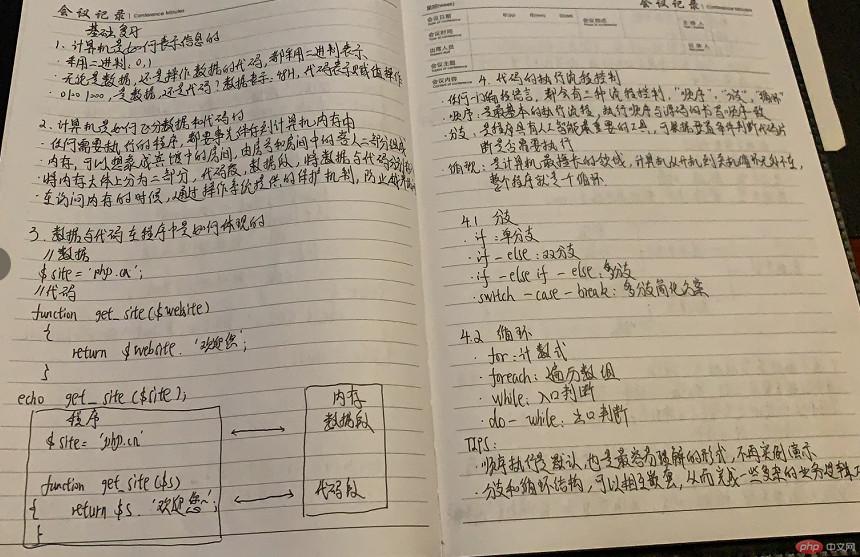 会议记录 Conference Minutes
基础复习
1. 计算机是如何表示信息的
· 采用二进制: 0,1
· 无论是数据, 还是操作数据的代码, 都采用二进制表示
· 0100 1000, 是数据, 还是代码? 数据表示: 48H, 代码表示赋值操作
2. 计算机是如何区分数据和代码的
· 任何需要执行的程序, 都要事先保存到计算机内存中
· 内存, 可以想象成宾馆中的房间, 由房号和房间中的客人二部分组成
· 将内存大体上分为二部分, 代码段, 数据段, 将数据与代码分别
· 在访问内存的时候, 通过操作系统提供的保护机制, 防止越界
3. 数据与代码在程序中是如何体现的
//数据
$site = 'php.cn';
//代码
function get_site($website)
{
return $website . '欢迎您';
}
echo get_site($site);
程序
$site = 'php.cn'
function get_site($s)
{ return $s . '欢迎您~';
}
内存
数据段
代码段
星期(week)
会议记录 Conference Minutes
会议日期
年(y) 月(m) 日(d)
会议地点
主持人
会议时间
出席人员
记录人
会议主题
会议内容
4. 代码的执行流程控制
· 任何一门编程语言, 都会有三种流程控制, "顺序", "分支", "循环"
· 顺序: 是最基本的执行流程, 执行顺序与源码的书写顺序一致
· 分支: 是程序具有人工智能最重要的工具, 可根据预置条件判断代码片
断是否需要执行
· 循环: 是计算机最擅长的领域, 计算机从开机到关机循环无处不在,
整个程序就是个循环
4.1 分支
· if: 单分支
· if - else: 双分支
· if - else if - else: 多分支
· switch - case - break: 多分支简化方案
4.2 循环
· for: 计数式
· foreach: 遍历数组
· while: 入口判断
· do - while: 出口判断
TIPS:
· 顺序执行是默认, 也是最容易理解的形式, 不再实例演示
· 分支和循环结构, 可以相互嵌套, 从而完成一些复杂的业务逻辑
php 中文网